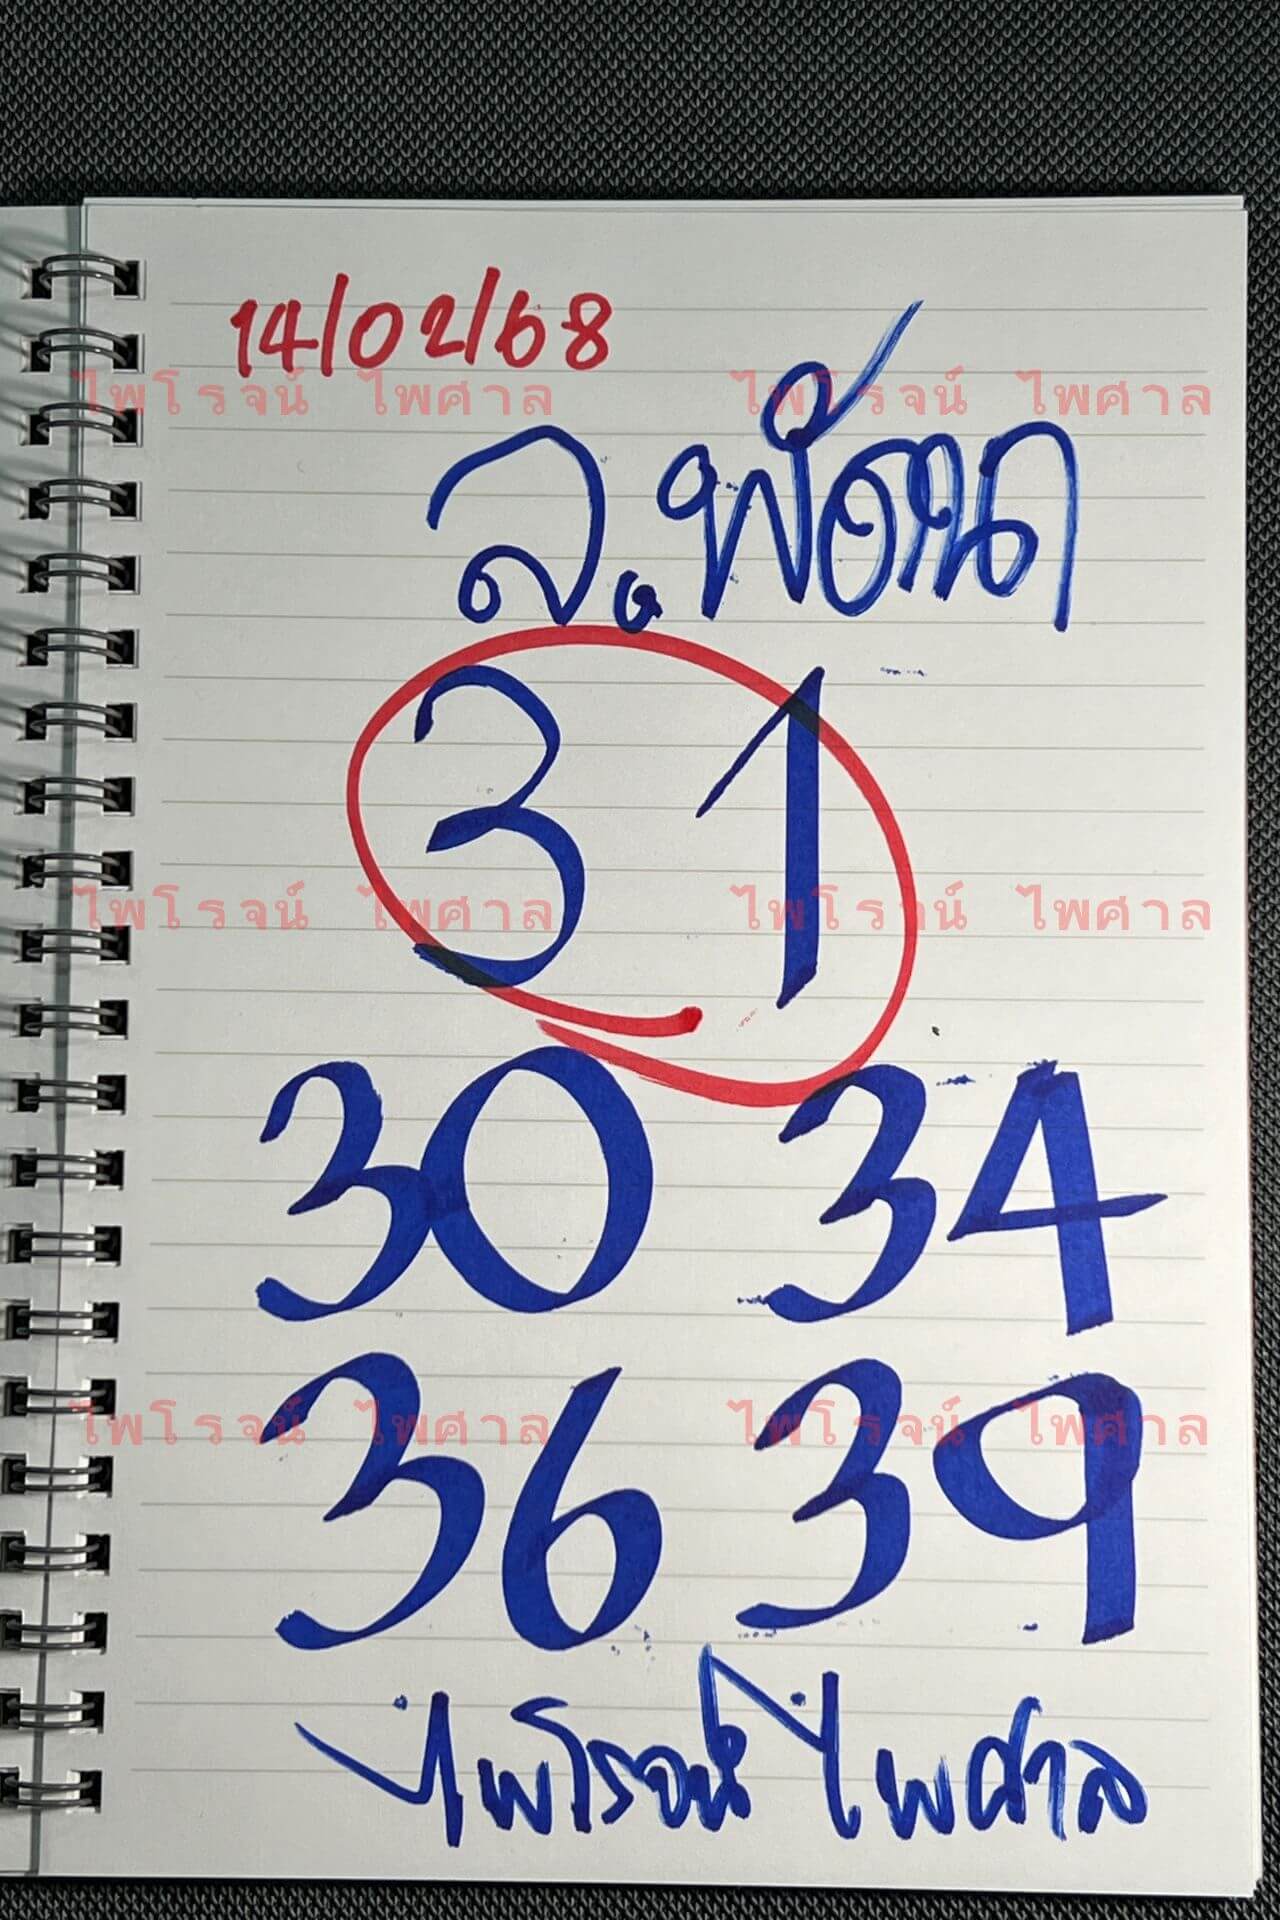 14/02/68
ไพโรจน์ ไพศาล ไพโรจน์ ไพศาล
ล.พัฒนา
3 1
ไพโรจน์ ไพศาล ไพโรจน์ ไพศาล
30 34
36 39
ไพโรจน์ ไพศาล ไพโรจน์ ไพศาล
ไพโรจน์ ไพศาล